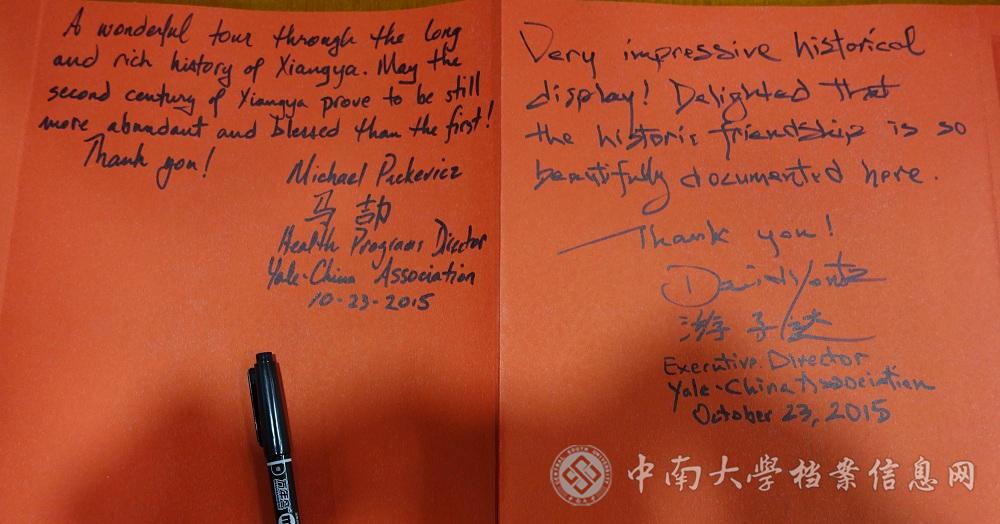 A wonderful tour through the long
and rich history of Xiangya. May the
second century of Xiangya prove to be still
more abundant and blessed than the first!
Thank you!
Michael Pickericz
马劼
Health Programs Director
Yale-China Association
10-23-2015
Very impressive historical
display! Delighted that
the historic friendship is so
beautifully documented here.
Thank you!
David Youtz
游子达
Executive Director
Yale-China Association
October 23, 2015
中南大学档案信息网